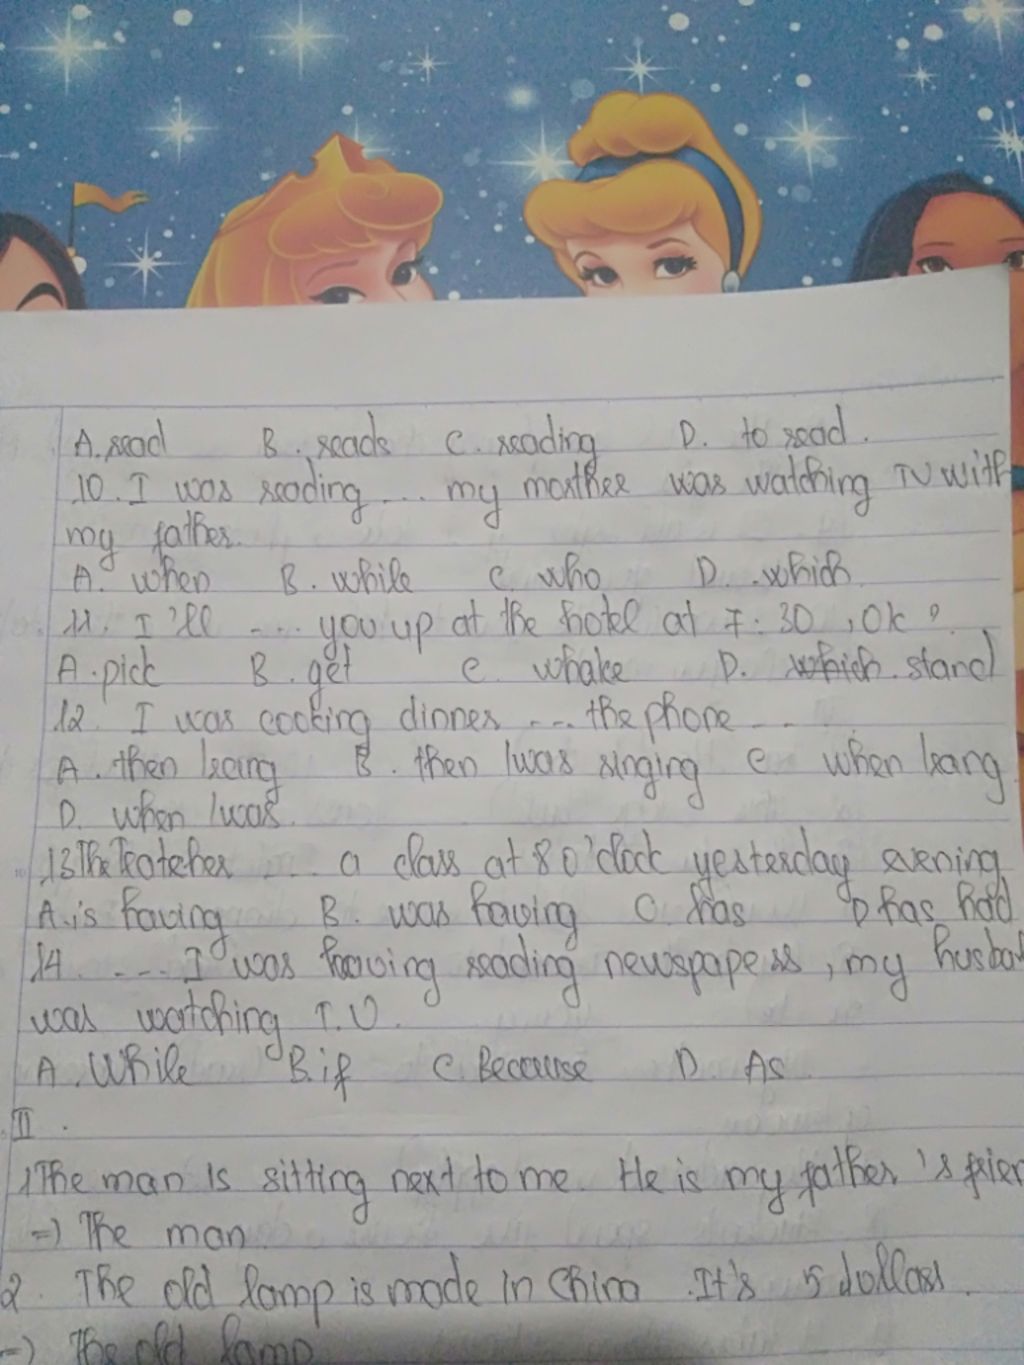 A. read B. reads C. reading D. to read.
10. I was reading ... my morther was watching TV with
my father.
A. when B. while C. who D. which
11. I'll .... you up at the hotel at 7:30, Ok?
A. pick B. get C. whake D. which. stand
12. I was cooking dinner .... the phone ...
A. then rang B. then /was singing C. when rang
D. when /was.
13. The Teateher .... a class at 8 o'clock yesterday evening
A. is having B. was having C. has D has had
14. .... I was having reading newspapers, my
was watching T.V.
A. While B. if C. Because D. As
II.
1 The man is sitting next to me. He is my father's
=) The man
2. The old lamp is made in China. It's 5 dollars.
=) The old lamp